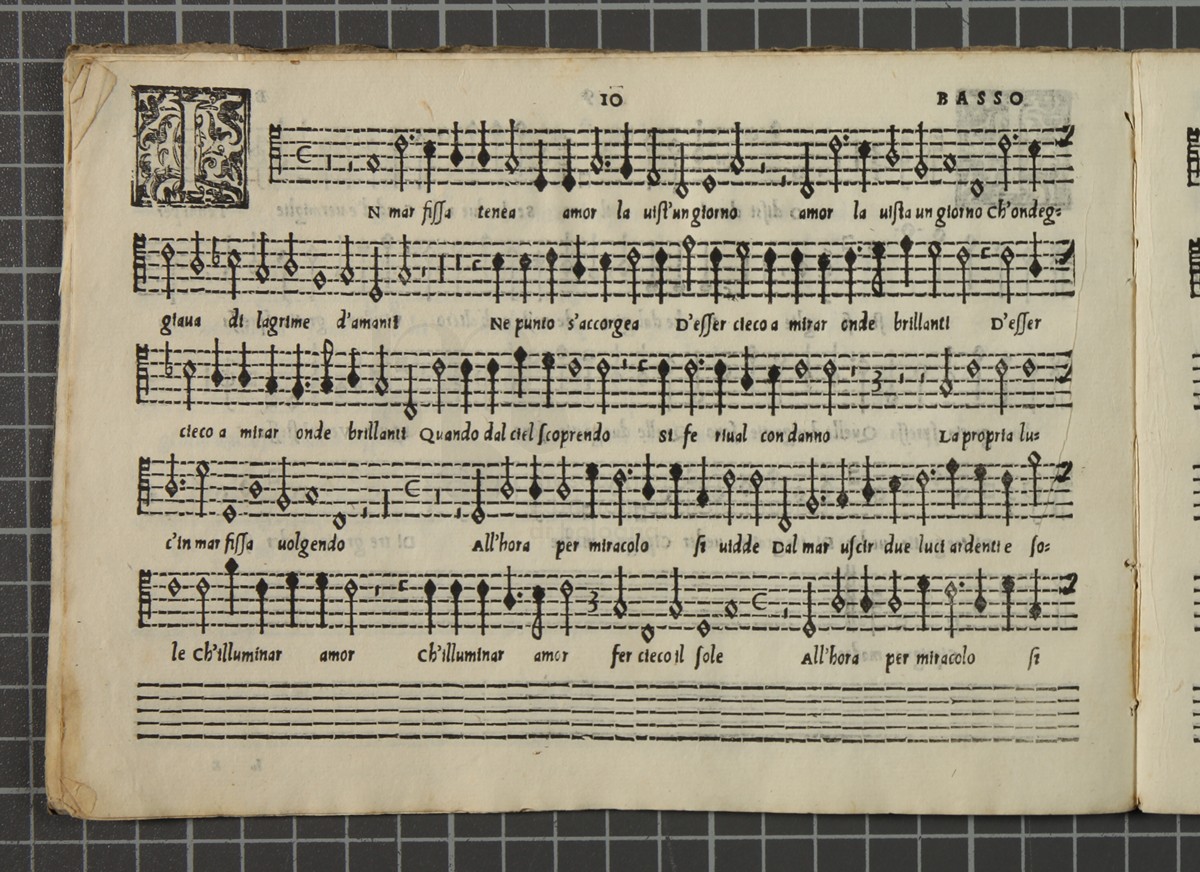 10 BASSO
IN mar fissa tenea amor la uist'un giorno amor la uista un giorno Ch'ondeg=
giaua di lagrime d'amanti Ne punto s'accorgea D'esser cieco a mirar onde brillanti D'esser
cieco a mirar onde brillanti Quando dal ciel scoprendo si fe riual con danno La propria lu=
c'in mar fissa uolgendo All'hora per miracolo si uidde Dal mar uscir due luci ardenti e so=
le Ch'illuminar amor Ch'illuminar amor fer cieco il sole All'hora per miracolo si